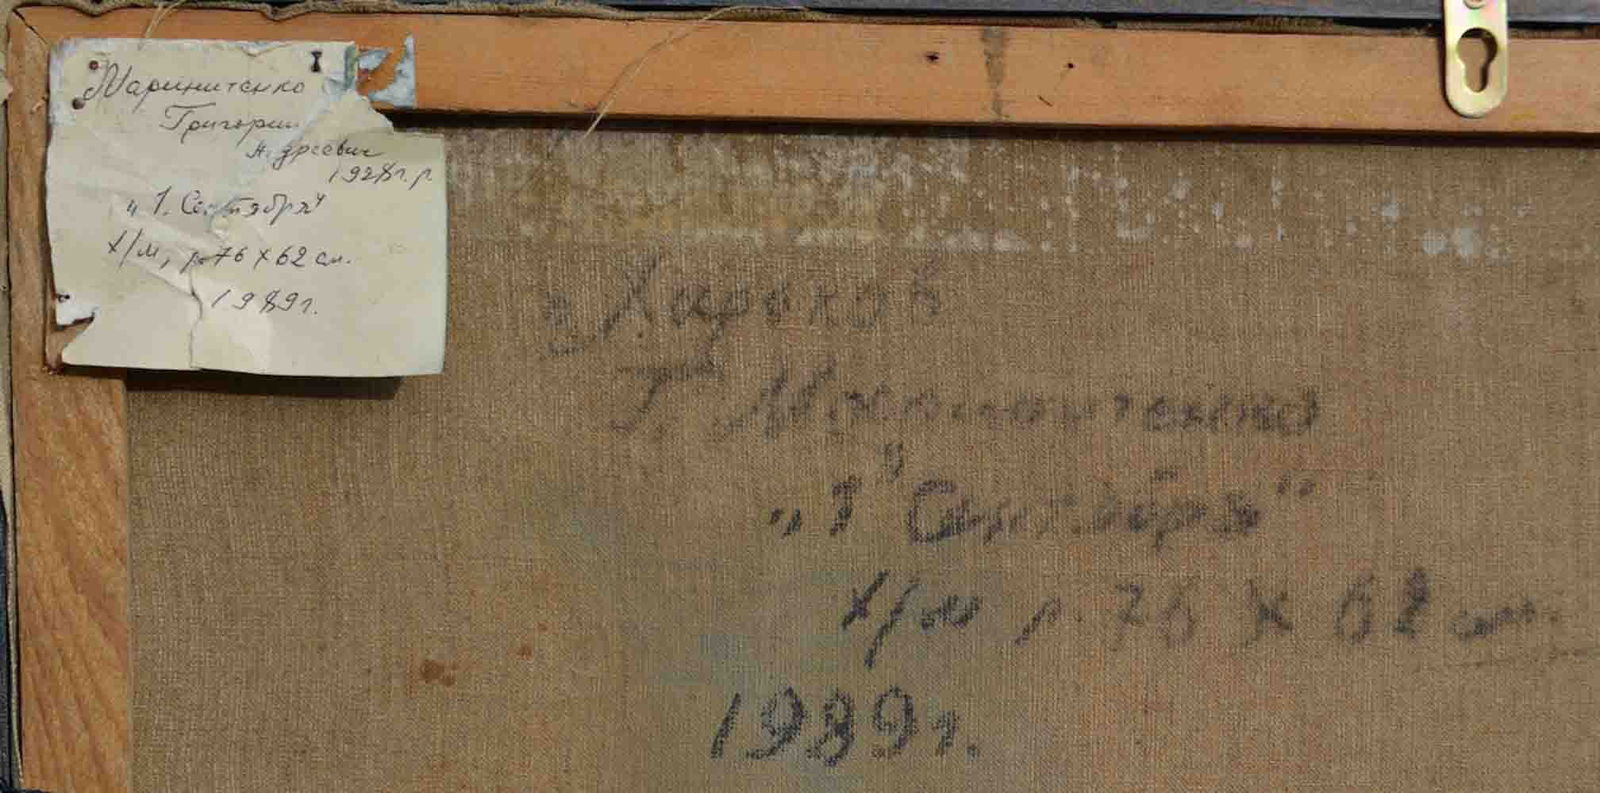 Маринитенко
Григорий
Андреевич
1928 г. р.
„1. Сентября"
х/м, р. 76 х 62 см.
1989г.
г. Харьков
Г. Маринитенко
„1 Сентября"
х/м р. 76 х 62 см.
1989г.